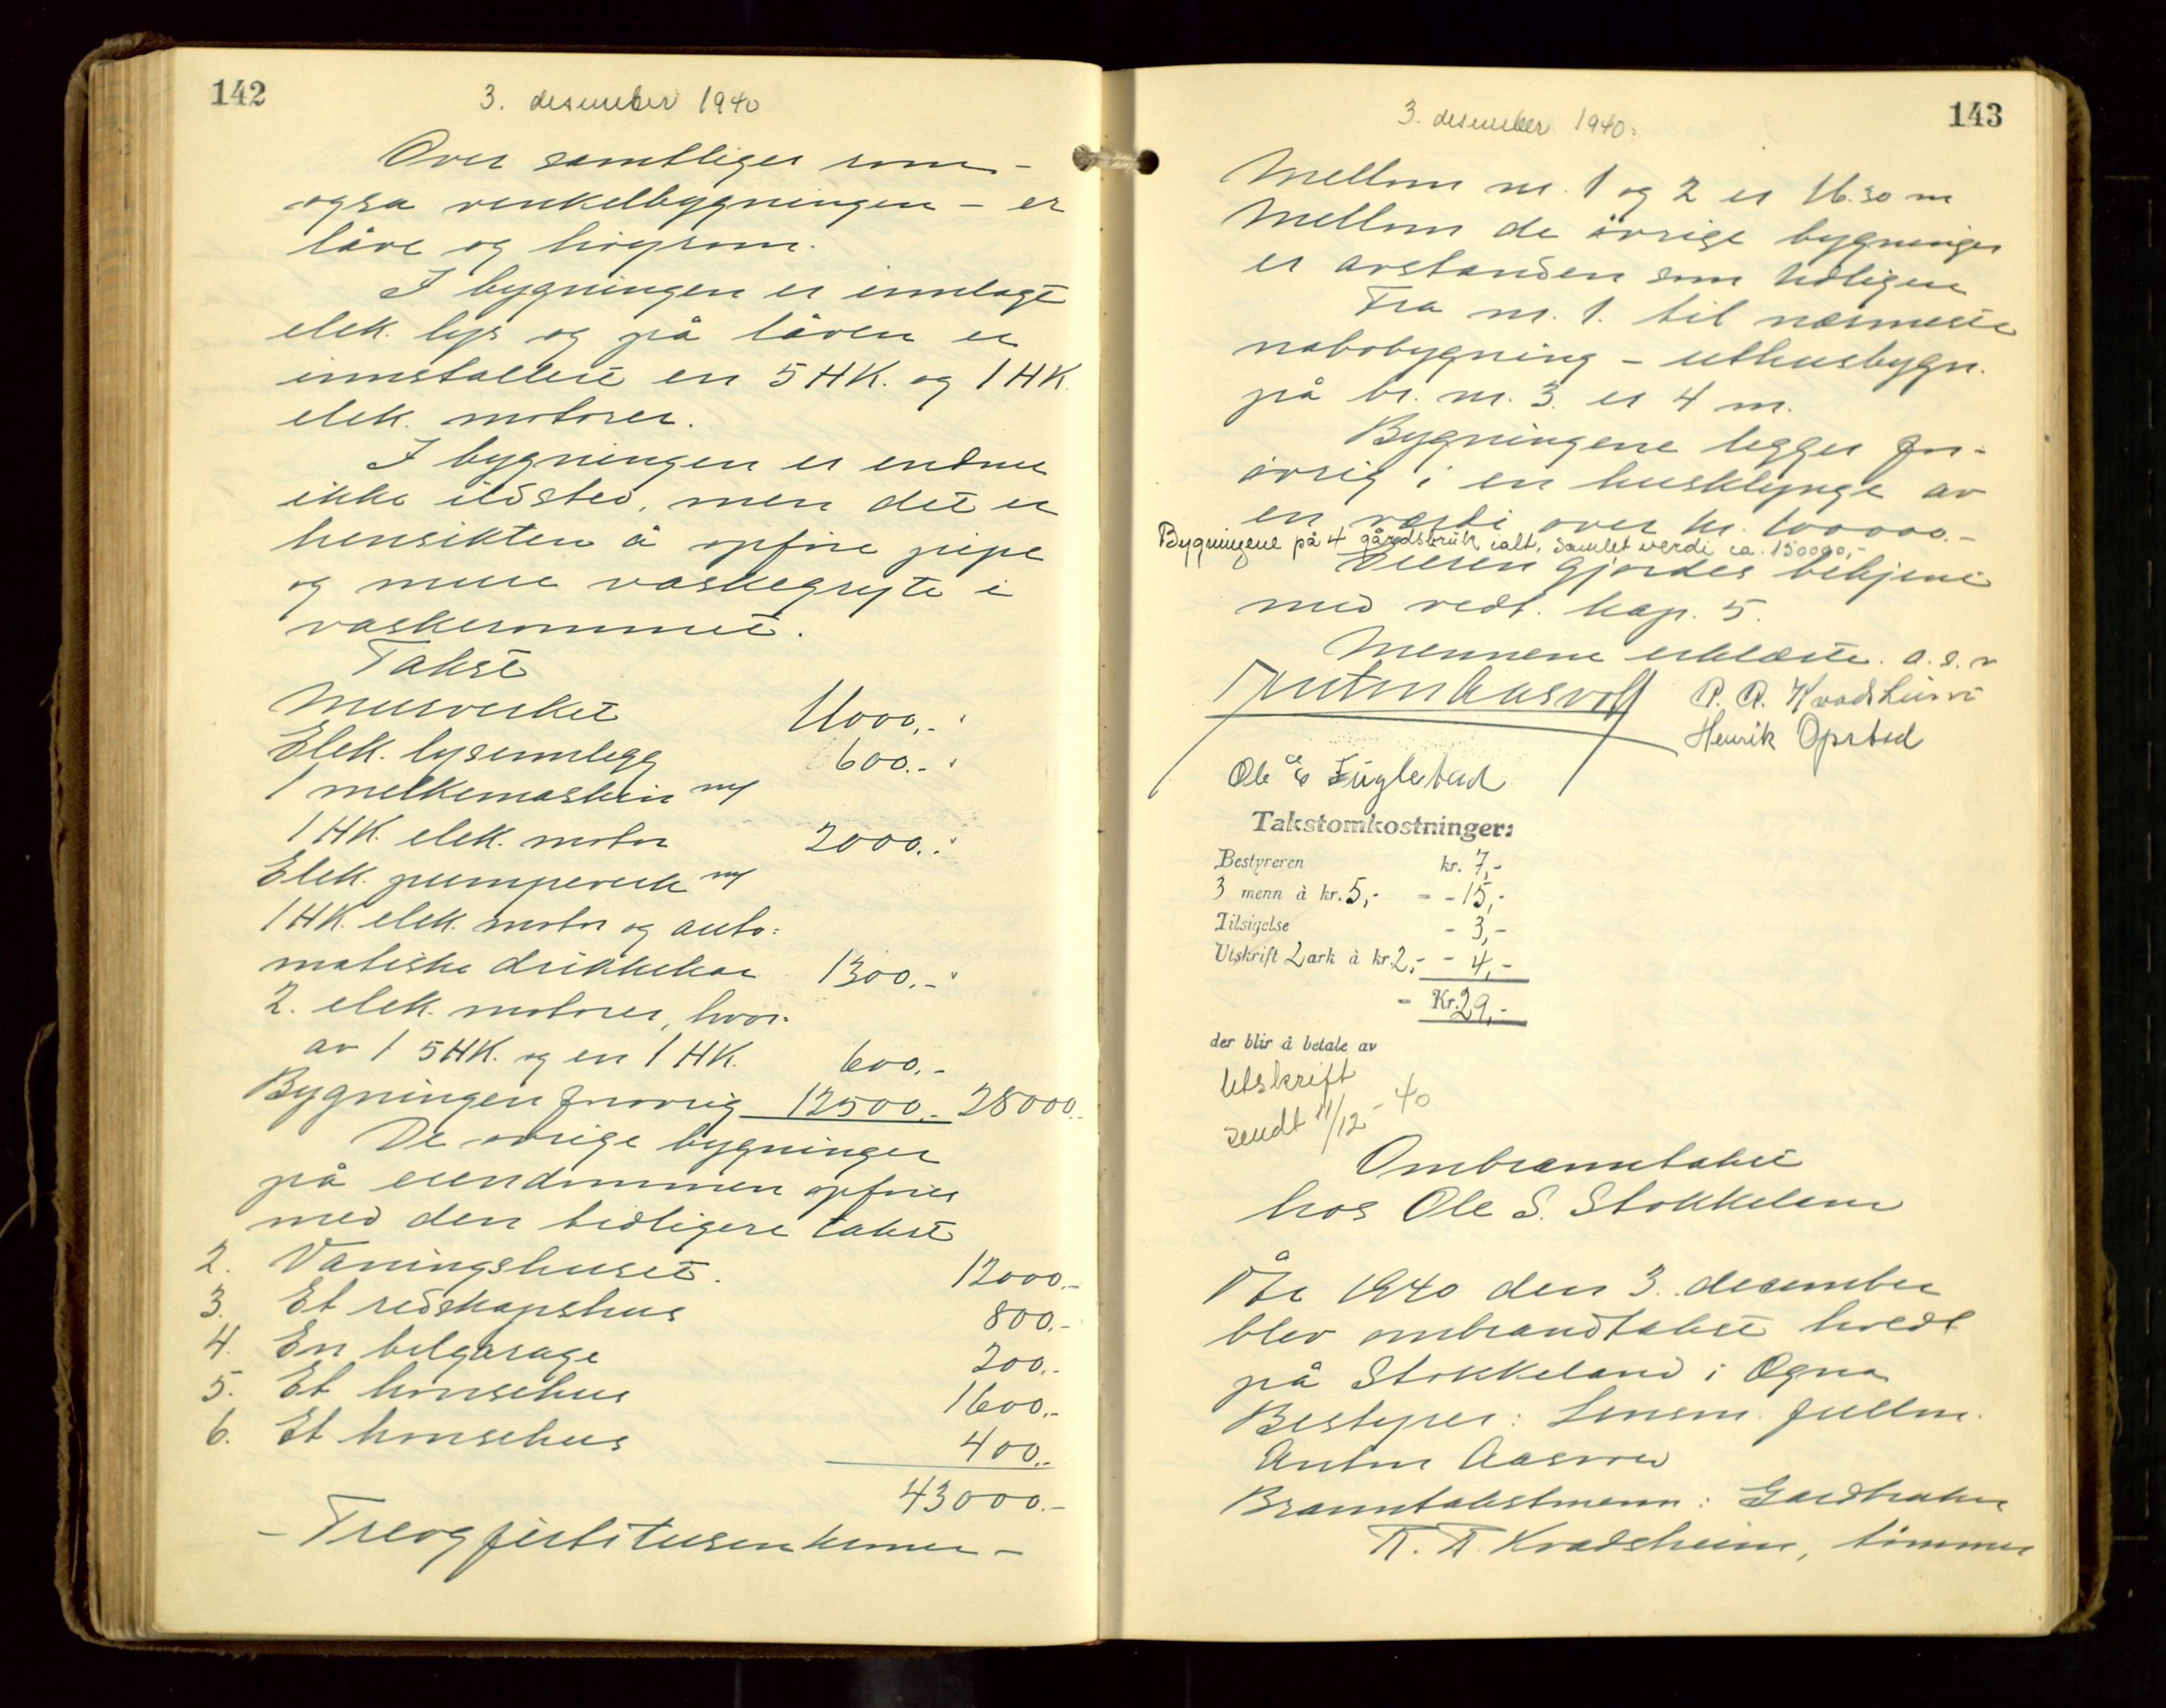 142
3. desember 1940
Over samtliger rom -
ogsa vinkelbygningen - er
låve og höyrom.
I bygningen er innlagt
elek. lys og på låven er
innstallert en 5 HK. og 1 HK.
elek. motorer.
I bygningen er endnu
ikke ildsted, men det er
hensikten å opföre pipe
og mure vaskegryte i
vaskerommet.
Takst
Murverket 11000.-
Elek. lysinnlegg 600.-
1 melkemaskin m/
1 HK. elek. motor 2000.-
Elek. pumpeverk m/
1 HK. elek. motor og auto=
matiske drikkekar 1300.-
2. elek. motorer, hvor=
av 1 5 HK. og en 1 HK. 600.-
Bygningen forövrig 12500.- 28000.-
De övrige bygninger
på eiendommen opföres
med den tidligere takst
2. Våningshuset. 12000.-
3. Et redskapshus 800.-
4. En bilgarage 200.-
5. Et hönsehus 1600.-
6. Et hönsehus 400.-
43000.-
- Treogfirtitusen kroner -
143
3. desember 1940.
Mellom nr. 1 og 2 er 16.50 m
Mellom de övrige bygninger
er avstanden som tidligere
Fra nr. 1. til nærmeste
nabobygning - uthusbygn.
på br. nr. 3. er 4 m.
Bygningene legger for=
övrig i en husklynge av
en verdi over kr. 100000.-
Bygningene på 4 gårdsbruk ialt, samlet verdi ca. 150000,-
Eieren gjordes bekjent
med vedt. kap. 5.
Mennene erklærte. a.s.v
Anton Aasvold
R. R. Kvadsheim
Henrik Opstad
Ole E Fuglestad
Takstomkostninger:
Bestyreren kr. 7,-
3 menn à kr. 5,- = - 15,-
Tilsigelse - 3,-
Utskrift 2 ark à kr. 2,- - 4,-
= Kr. 29,-
der blir å betale av
Utskrift
sendt 11/12 - 40
Ombranntakst
hos Ole S. Stokkeland
År 1940 den 3. desember
blev ombrandtakst holdt
på Stokkeland i Ogna
Bestyrer: Lensm. fullm.
Anton Aasvold
Branntakstmenn: Gardbruker
R. R. Kvadsheim, tömmer